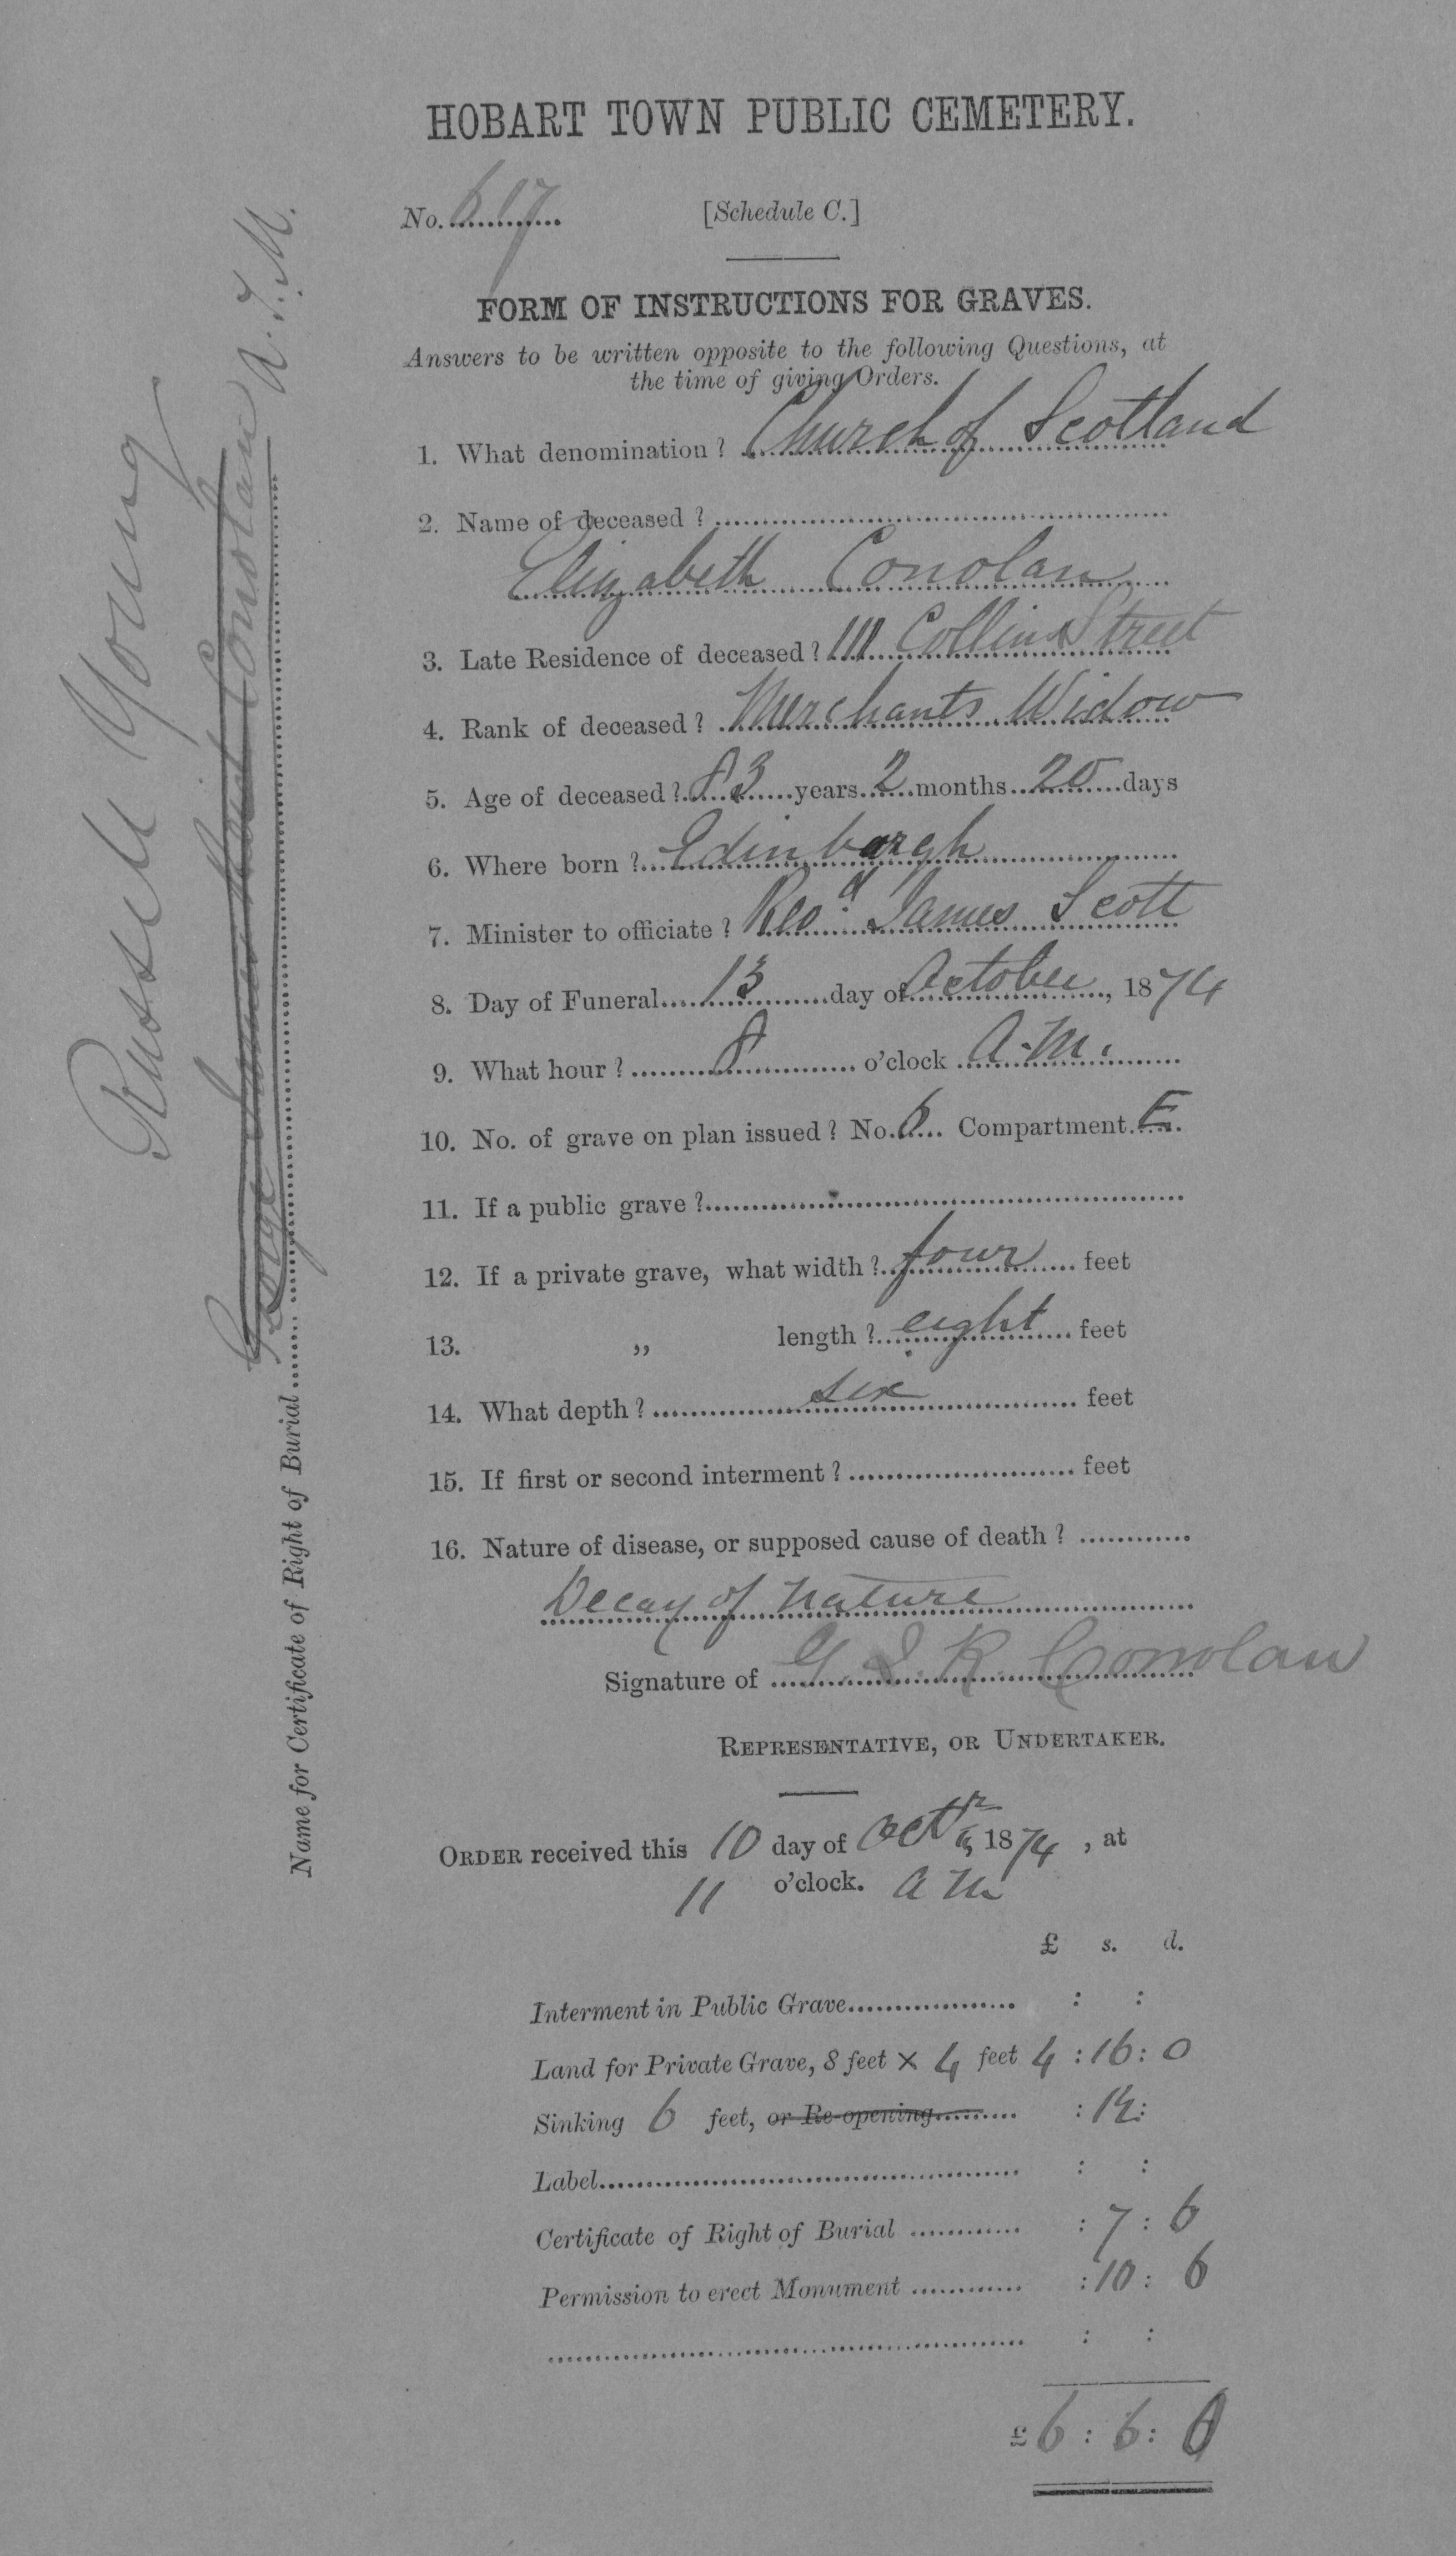 HOBART TOWN PUBLIC CEMETERY.
No. 617 [Schedule C.]
FORM OF INSTRUCTIONS FOR GRAVES.
Answers to be written opposite to the following Questions, at
the time of giving Orders.
1. What denomination? Church of Scotland
2. Name of deceased?
Elizabeth Conolan
3. Late Residence of deceased? 111 Collins Street
4. Rank of deceased? Merchants Widow
5. Age of deceased? 83 years 2 months 20 days
6. Where born? Edinburgh
7. Minister to officiate? Revd. James Scott
8. Day of Funeral 13 day of October, 1874
9. What hour? 8 o'clock A.M.
10. No. of grave on plan issued? No. 6 Compartment E
11. If a public grave?
12. If a private grave, what width? four feet
13. „ length? eight feet
14. What depth? six feet
15. If first or second interment? feet
16. Nature of disease, or supposed cause of death?
Decay of Nature
Signature of G. S. R. Conolan
REPRESENTATIVE, OR UNDERTAKER.
ORDER received this 10 day of Octr, 1874, at
11 o'clock. A M
£ s. d.
Interment in Public Grave : :
Land for Private Grave, 8 feet × 4 feet 4 : 16 : 0
Sinking 6 feet, or Re-opening : 12 :
Label : :
Certificate of Right of Burial : 7 : 6
Permission to erect Monument : 10 : 6
: :
£ 6 : 6 : 0
Name for Certificate of Right of Burial George Conolan
Russell Young